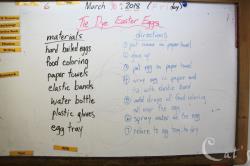 March 2018
day)
Tie Dye Easter Eggs
materials
hard boiled eggs
food coloring
paper towels
elastic bands
water bottle
plastic gloves
egg tray
directions
① put names on paper towel
②
③ put egg on paper towel
④ wrap egg in paper and
tie with elastic band
⑤ add drops of food coloring
all over the egg
⑥ spray water on the egg
⑦ return to egg tray to dry